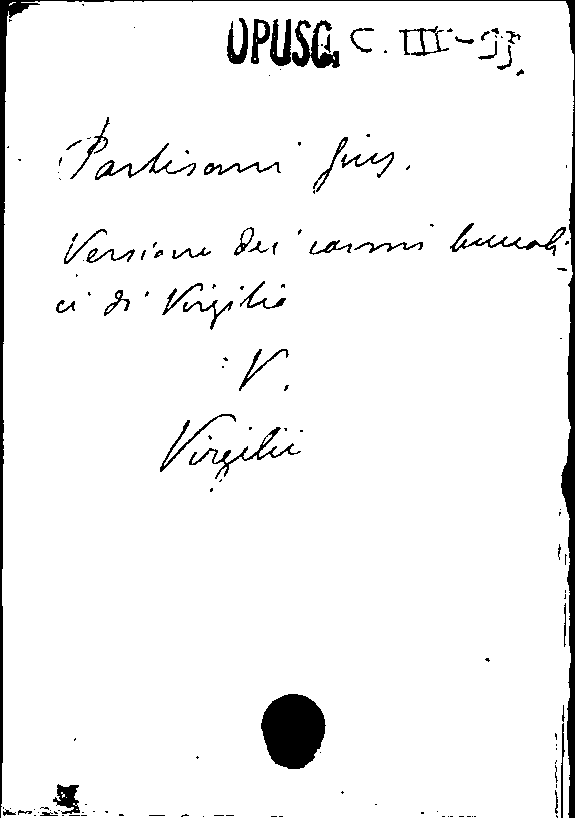 OPUSC. C. III-93.
Partisani Gius.
Versione dei carmi buccoli-
ci di Virgilio
V.
Virgilii